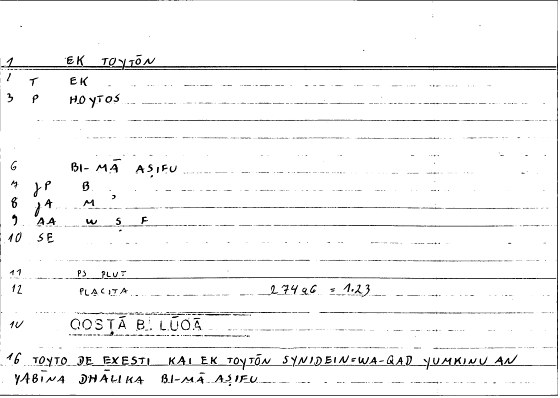 1 EK TOYTŌN
2 T EK
3 P HOYTOS
6 BI-MĀ AṢIFU
7 JP B
8 JA M ʾ
9 AA W Ṣ F
10 SE
11 PS PLUT
12 PLACITA 274a6 = 1.23
14 QOSṬĀ B. LŪQĀ
16 TOYTO DE EXESTI KAI EK TOYTŌN SYNIDEIN=WA-QAD YUMKINU AN
YABĪNA DHĀLIKA BI-MĀ AṢIFU